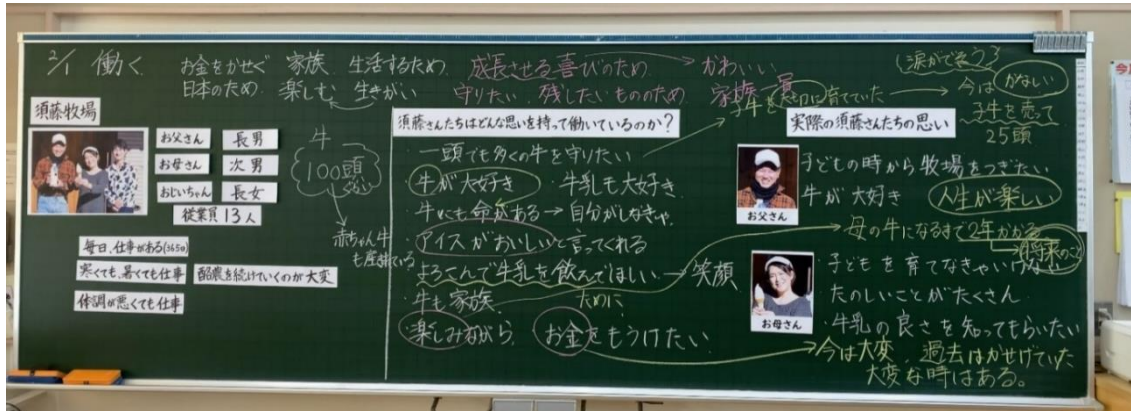 2/1 働く
お金をかせぐ 家族 生活するため 成長させる喜びのため → かわいい
日本のため 楽しむ 生きがい 守りたい 残したいもののため 家族一員
須藤牧場
お父さん 長男
お母さん 次男
おじいちゃん 長女
従業員13人
毎日、仕事がある(365日)
寒くても、暑くても仕事 酪農を続けていくのが大変
体調が悪くても仕事
牛
100頭
赤ちゃん牛
も産まれている
須藤さんたちはどんな思いを持って働いているのか?
・一頭でも多くの牛を守りたい
・牛が大好き ・牛乳も大好き
・牛にも命がある → 自分がしなきゃ
・アイスがおいしいと言ってくれる
・よろこんで牛乳を飲んでほしい → 笑顔
・牛も家族 ために
・楽しみながら お金をもうけたい
子牛を大切に育てていた
涙がでそう
今は かなしい
子牛を売って
25頭
実際の須藤さんたちの思い
お父さん
・子どもの時から牧場をつぎたい
・牛が大好き 人生が楽しい
・母の牛になるまで2年かかる
将来のこと
お母さん
・子どもを育てなきゃいけない
・たのしいことがたくさん
・牛乳の良さを知ってもらいたい
今は大変、過去はかせげていた
大変な時はある。